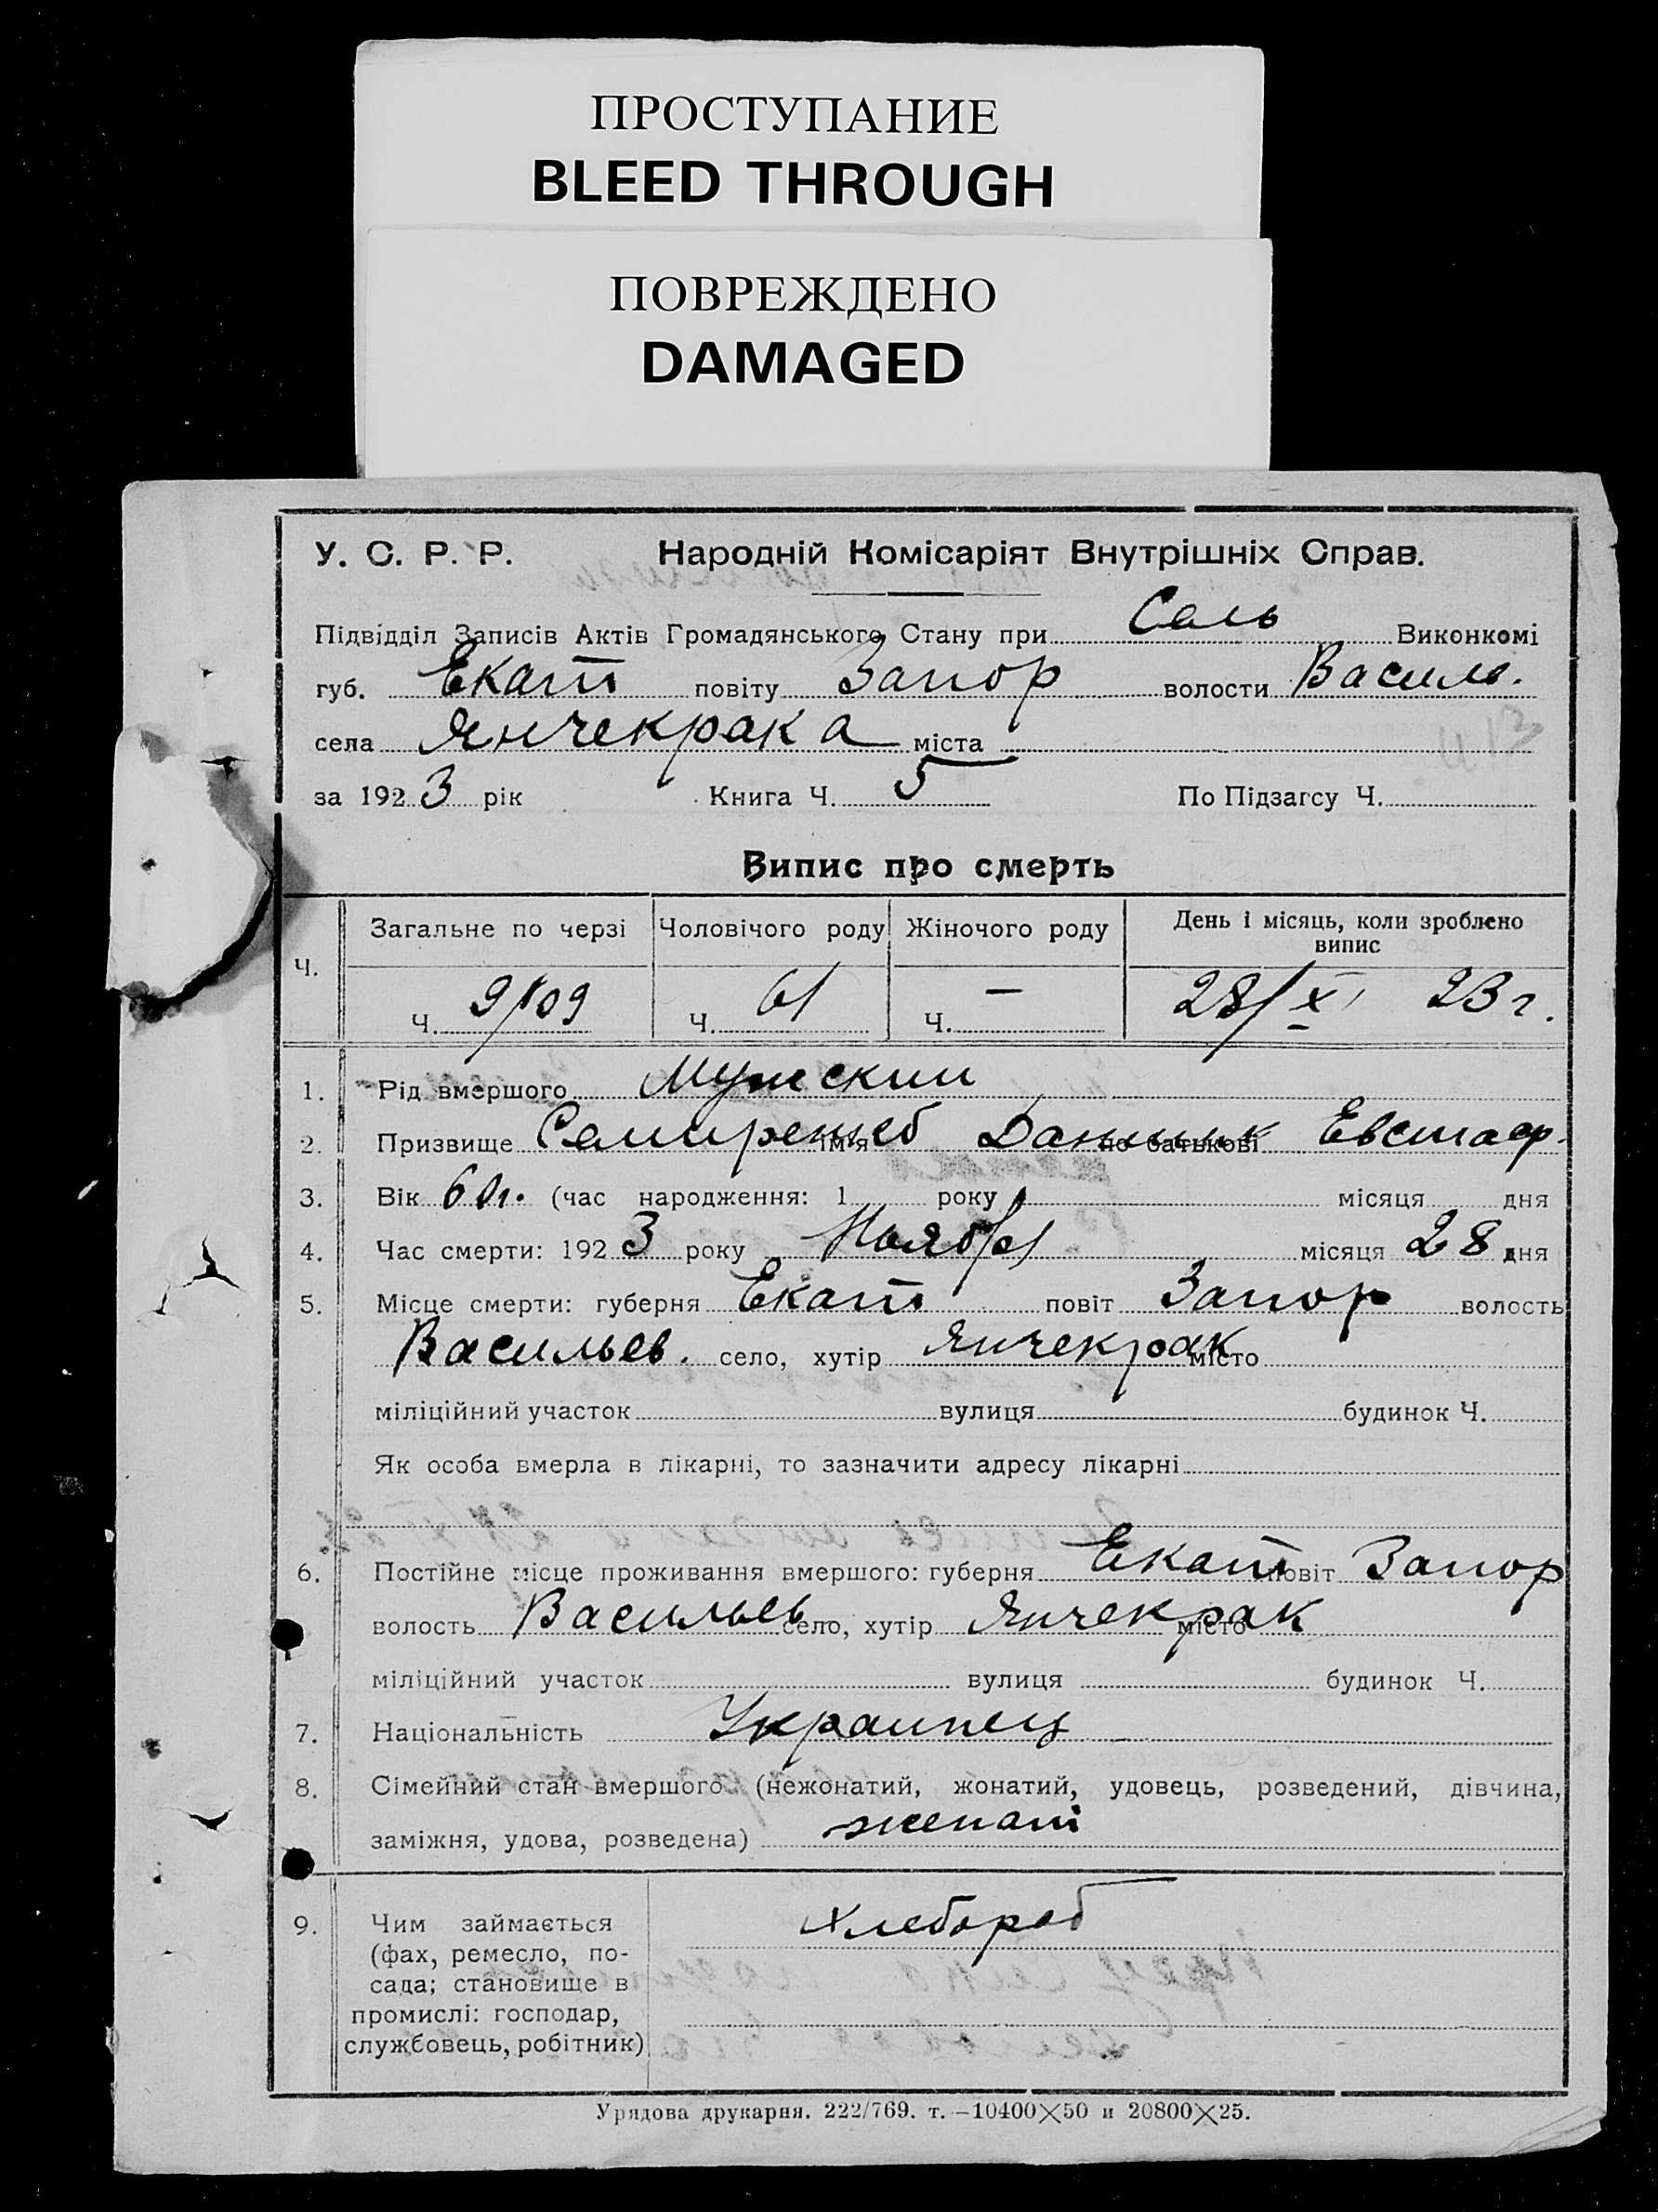 ПРОСТУПАНИЕ
BLEED THROUGH
ПОВРЕЖДЕНО
DAMAGED
У. С. Р. Р. Народній Комісаріят Внутрішніх Справ.
Підвідділ Записів Актів Громадянського Стану при Сель Виконкомі
губ. Екат повіту Запор волости Василь.
села Янчекрака міста
за 1923 рік Книга Ч. 5 По Підзагсу Ч.
Випис про смерть
Ч. Загальне по черзі Чоловічого роду Жіночого роду День і місяць, коли зроблено випис
Ч. Ч. 61 Ч. — 28/XI 23 г.
1. Рід вмершого Мужский
2. Призвище ім'я Данник по батькові Евстаф.
3. Вік (час народження: 1 року місяця дня
4. Час смерти: 1923 року Ноября місяця 28 дня
5. Місце смерти: губерня Екат повіт Запор волость
Васильев. село, хутір Янчекрак місто
міліційний участок вулиця будинок Ч.
Як особа вмерла в лікарні, то зазначити адресу лікарні
6. Постійне місце проживання вмершого: губерня Екат повіт Запор
волость Васильев село, хутір Янчекрак місто
міліційний участок вулиця будинок Ч.
7. Національність Украинец
8. Сімейний стан вмершого (нежонатий, жонатий, удовець, розведений, дівчина,
заміжня, удова, розведена) женат
9. Чим займається Хлебороб
(фах, ремесло, по-
сада; становище в
промислі: господар,
службовець, робітник)
Урядова друкарня. 222/769. т.—10400×50 и 20800×25.